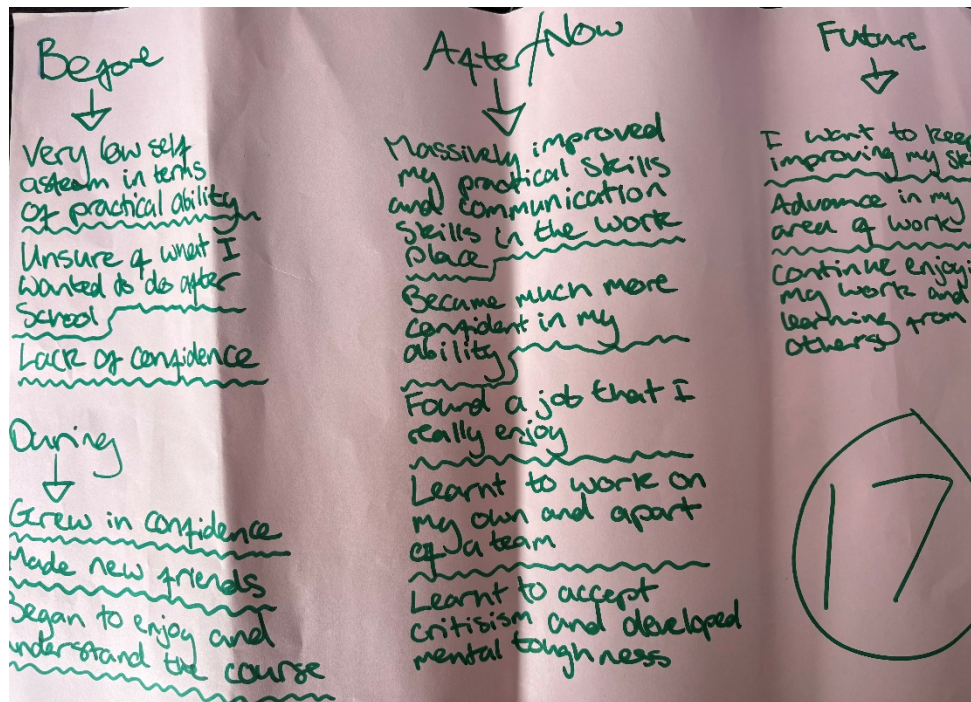 Before
Very low self
asteem in terms
of practical ability
Unsure of what I
wanted to do after
School
Lack of confidence
During
Grew in confidence
Made new friends
Began to enjoy and
understand the course
After/Now
Massively improved
my practical skills
and communication
skills in the work
place
Became much more
confident in my
ability
Found a job that I
really enjoy
Learnt to work on
my own and apart
of a team
Learnt to accept
critisism and developed
mental toughness
Future
I want to keep
improving my
Advance in my
area of work
continue
my work and
learning from
others
17